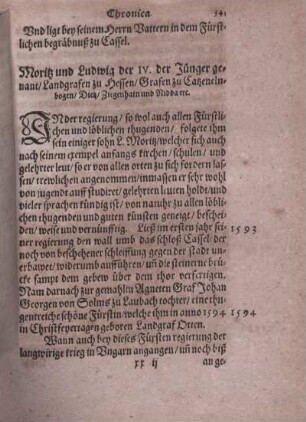 Chronica 341
Vnd ligt bey seinem Herrn Vattern in dem Fürst-
lichen begräbnuß zu Cassel.
Moritz und Ludwig der IV. der Jünger ge-
nant/ Landgrafen zu Hessen/ Grafen zu Catzeneln-
bogen/ Dietz/ Zigenhain und Nidda rc.
INder regierung/ so wol auch allen Fürstli-
chen und löblichen thugenden/ folgete ihm
sein einiger sohn L. Moritz/ welcher sich auch
nach seinem exempel anfangs kirchen/ schulen/ und
gelehrter leut/ so er von allen orten zu sich fordern las-
sen/ trewlichen angenommen/ inmassen er sehr wohl
von jugend auf studiret/ gelehrten leuten holdt/ und
vieler sprachen kündig ist/ von natuhr zu allen löbli-
chen thugenden und guten künsten geneigt/ beschei-
den/ weise und vernünfftig. Ließ im ersten jahr sei- 1593
ner regierung den wall umb das schloß Cassel/ der
noch von beschehener schleiffung gegen der stadt un-
erbawet/ widerumb aufführen/ uñ die steinerne brü-
cke sampt dem gebew über dem thor verfertigen.
Nam darnach zur gemahlin Agneten Graf Johan
Georgen von Solms zu Laubach tochter/ eine thu-
gentreiche schöne Fürstin/ welche ihm in anno 1594 1594
in Christfeyertagen geboren Landgraf Otten.
Wann auch bey dieses Fürsten regierung der
langwirige krieg in Vngarn angangen/ uñ noch biß
xx ij an ge-